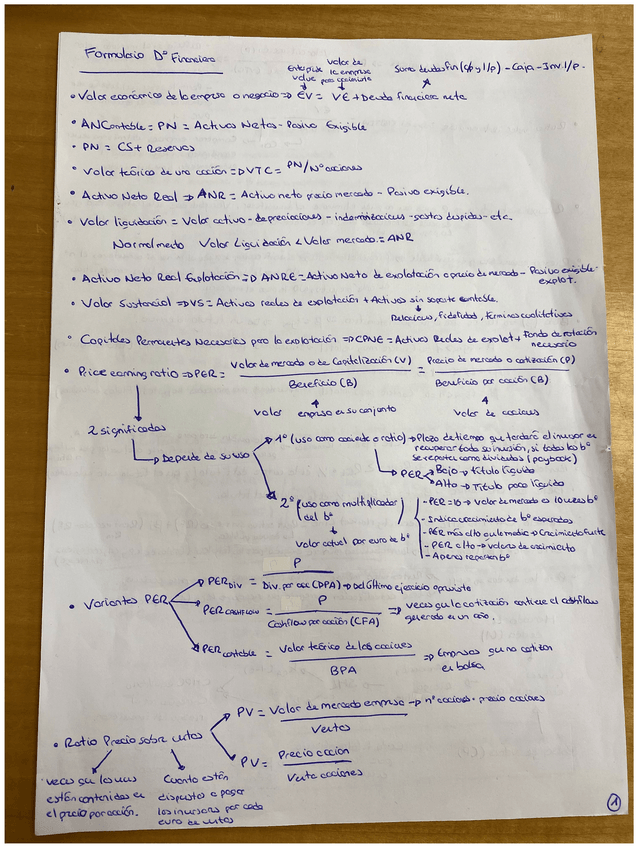 Formulario Dº Financiero
Enterprise value
valor de la empresa para accionista
Suma deudas fin (c/p y l/p) - Caja - Inv. l/p.
• Valor económico de la empresa o negocio => EV = VE + Deuda financiera neta
• ANContable = PN = Activos Netos - Pasivo Exigible
• PN = CS + Reservas
• Valor teórico de una acción => VTC = PN/Nº acciones
• Activo Neto Real => ANR = Activo neto precio mercado - Pasivo exigible.
• Valor liquidación = Valor activo - depreciaciones - indemnizaciones - gastos despidos - etc.
Normalmente Valor Liquidación < Valor mercado = ANR
• Activo Neto Real Explotación => ANRE = Activo Neto de explotación a precio de mercado - Pasivo exigible explot.
• Valor Sustancial => VS = Activos reales de explotación + Activos sin soporte contable.
Relaciones, fidelidad, términos cualitativos
• Capitales Permanentes Necesarios para la explotación => CPNE = Activos Reales de explot + Fondo de rotación necesario
• Price earning ratio => PER = Valor de mercado o de Capitalización (V) / Beneficio (B) = Precio de mercado o cotización (P) / Beneficio por acción (B)
valor empresa en su conjunto
valor de acciones
2 significados
Depende de su uso
1º (uso como cociente o ratio) → Plazo de tiempo que tardará el inversor en
recuperar toda su inversión, si todos los bº
se reparten como dividendos (payback)
PER → Bajo → título líquido
→ Alto → Título poco líquido
2º (uso como multiplicador del bº)
valor actual por euro de bº
- PER = 10 → valor de mercado es 10 veces bº
- Indica crecimiento de bº esperados
- PER más alto que la media → Crecimiento fuerte
- PER alto → valores de crecimiento
- Apenas reparten bº
• Variantes PER
PER DIV = P / Div. por acc (DPA) → Del último ejercicio o previsto
PER CASHFLOW = P / Cashflow por acción (CFA) => veces que la cotización contiene el cashflow
generado en un año.
PER contable = Valor teórico de las acciones / BPA => Empresas que no cotizan
en bolsa
• Ratio Precio sobre ventas
PV = Valor de mercado empresa / Ventas → nº acciones · precio acciones
PV = Precio accion / Venta acciones
veces que las ventas
están contenidas en
el precio por acción.
Cuanto están
dispuestos a pagar
los inversores por cada
euro de ventas
1